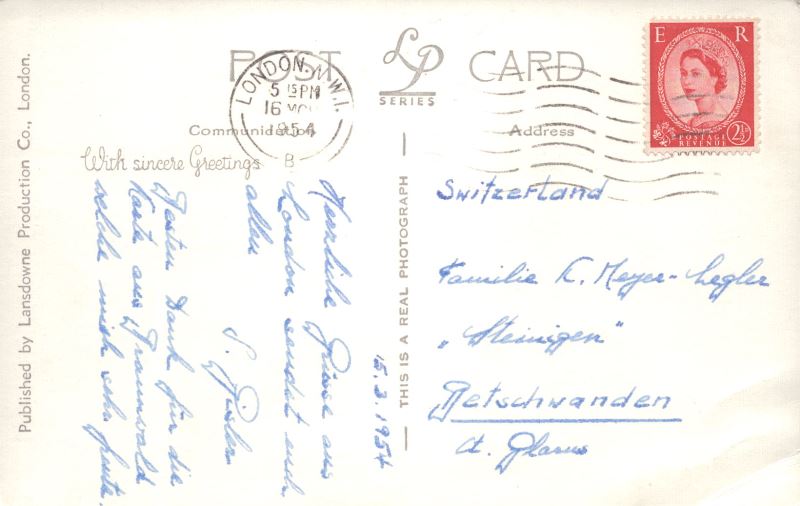 POST CARD
LP
SERIES
LONDON. N.W.1.
5 15 PM
16
1954
B
E R
POSTAGE
REVENUE
2½
Communication
Address
With sincere Greetings
Published by Lansdowne Production Co., London.
THIS IS A REAL PHOTOGRAPH
15.3.1954
Herzliche Grüsse aus
London sendet euch
allen
S. Gisler
Besten Dank für die
Karte aus Braunwald
welche mich sehr freute.
Switzerland
Familie K. Meyer-Legler
„Steinigen"
Betschwanden
Kt. Glarus